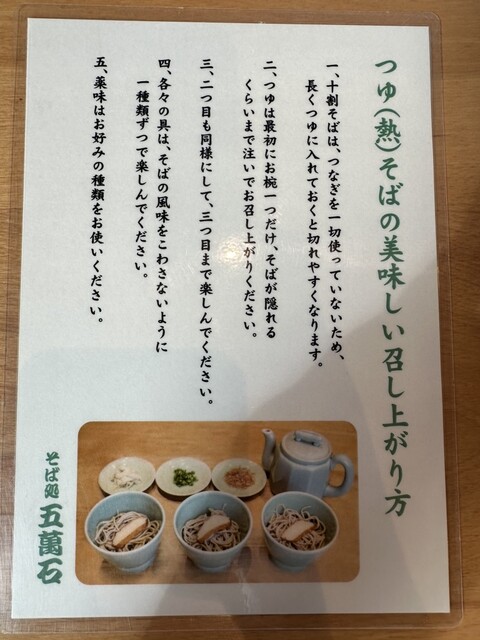 つゆ(熱)そばの美味しい召し上がり方
一、十割そばは、つなぎを一切使っていないため、
長くつゆに入れておくと切れやすくなります。
二、つゆは最初にお椀一つだけ、そばが隠れる
くらいまで注いでお召し上がりください。
三、二つ目も同様にして、三つ目まで楽しんでください。
四、各々の具は、そばの風味をこわさないように
一種類ずつで楽しんでください。
五、薬味はお好みの種類をお使いください。
そば処 五萬石